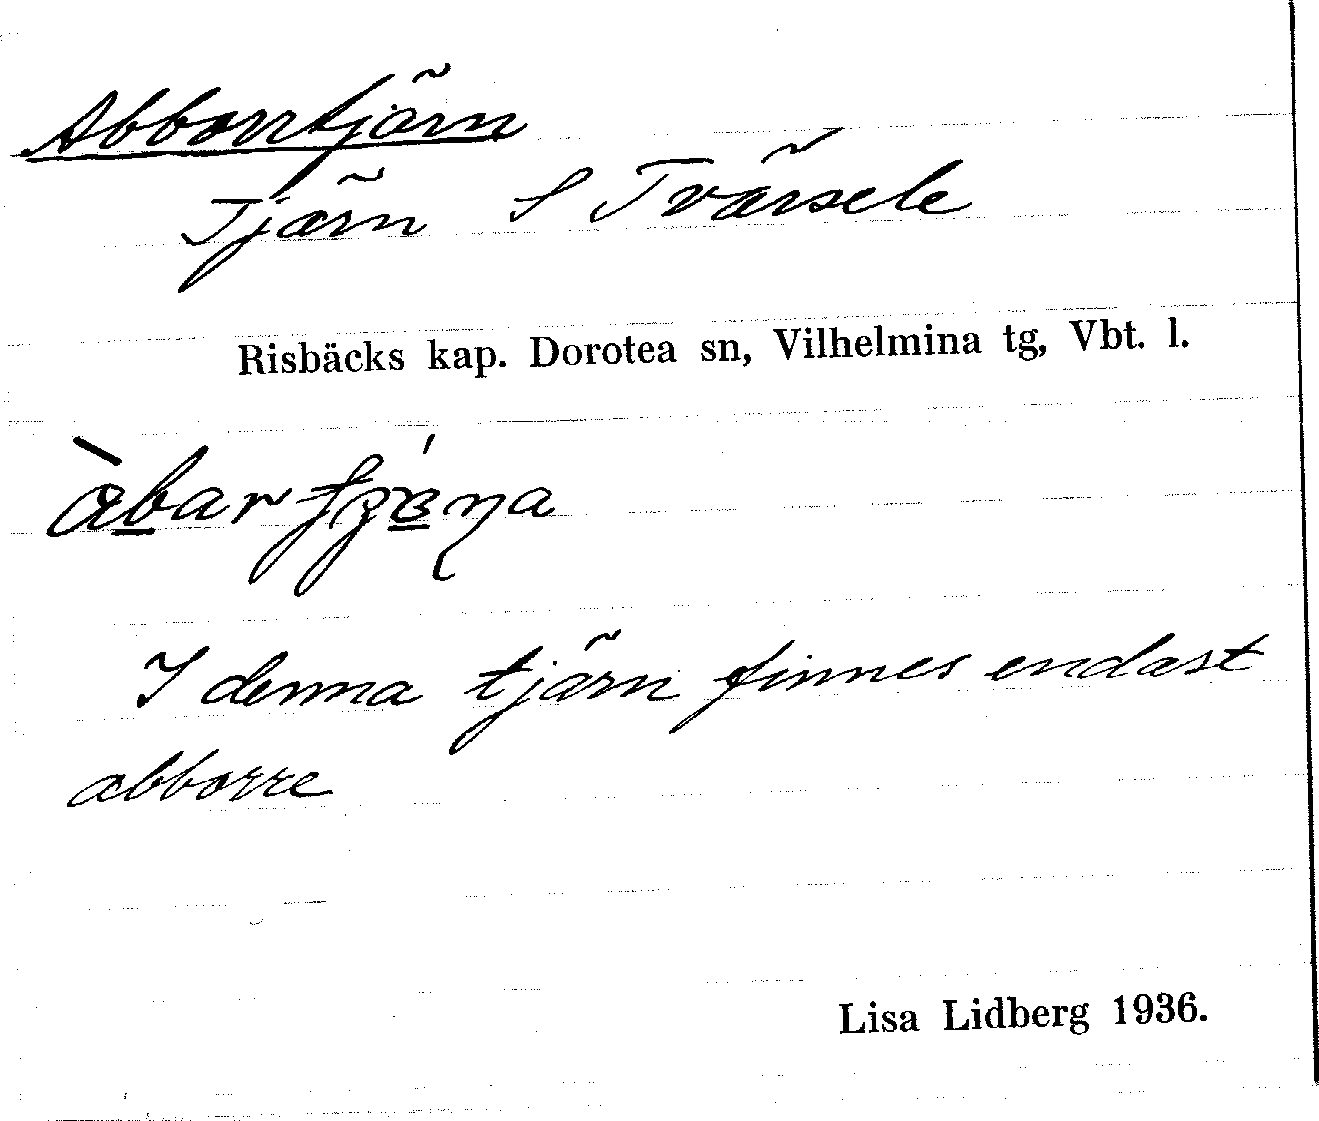 Abborrtjärn
Tjärn S Tvärsele
Risbäcks kap. Dorotea sn, Vilhelmina tg, Vbt. l.
I denna tjärn finnes endast
abborre
Lisa Lidberg 1936.